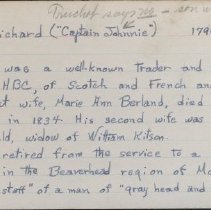 Truchot says no - son w
Richard ("Captain Johnnie") 179
was a well-known Trader and
HBC, of Scotch and French an
t wife, Marie Ann Berland, died
in 1834. His second wife was
ld, widow of William Kitson.
retired from the service to a
in the Beaverhead region of Mo
staff" of a man of "gray head and